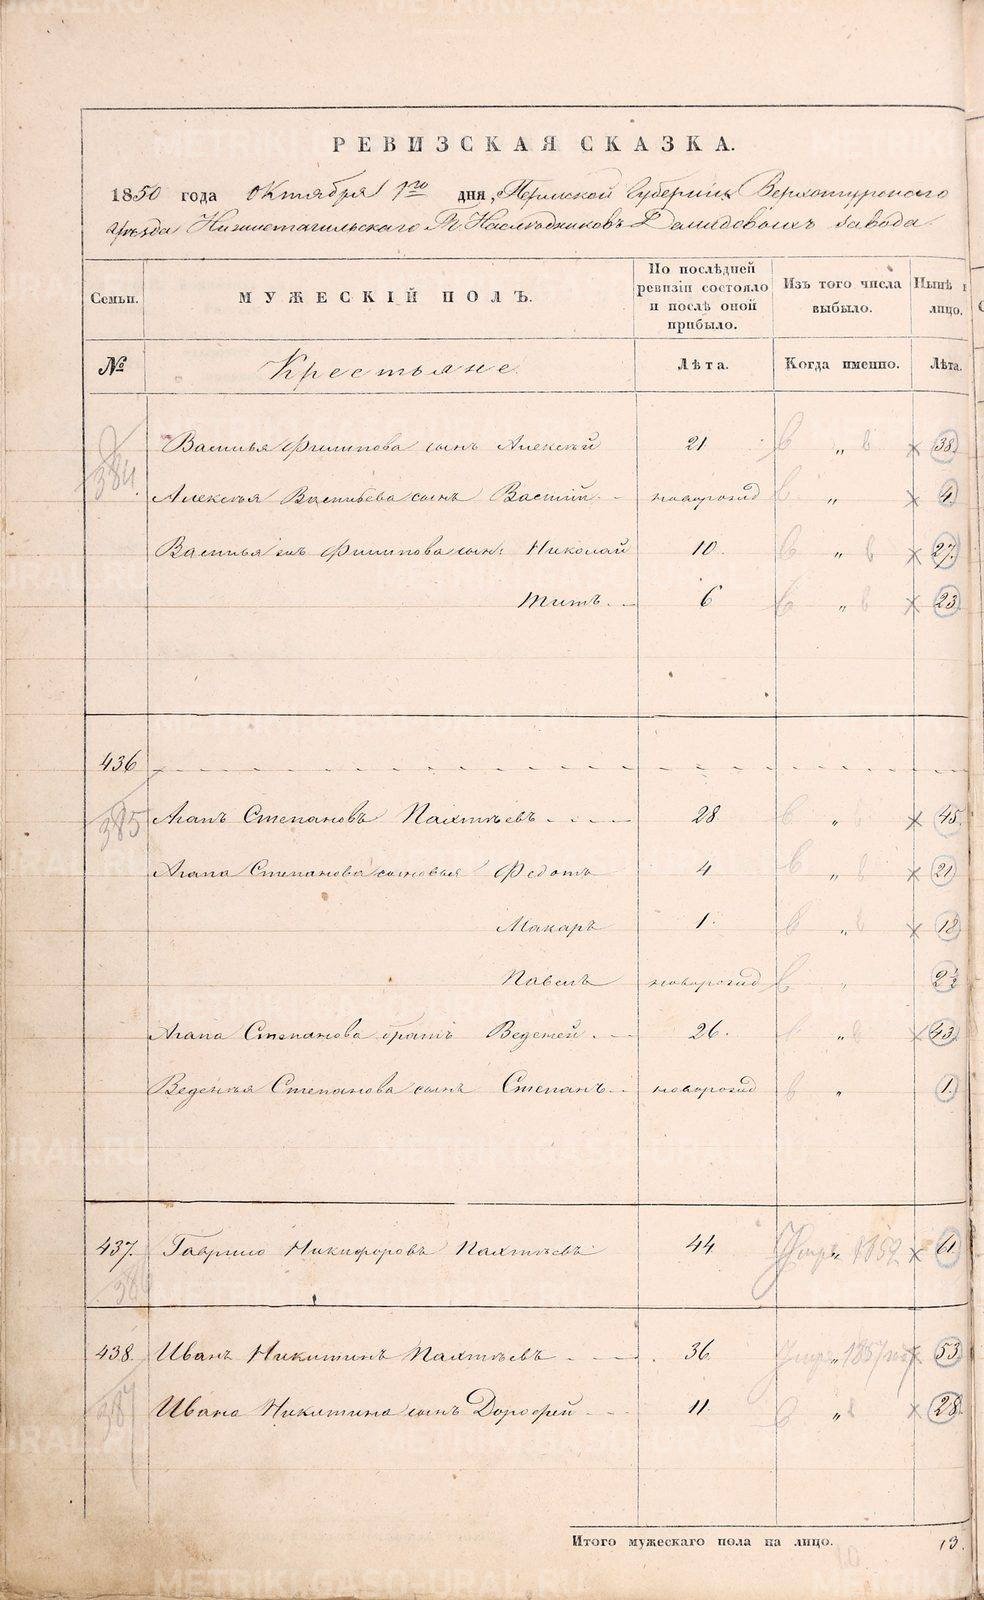 РЕВИЗСКАЯ СКАЗКА.
1850 года Октября 1го дня, Пермской Губерніи Верхотурскаго
Уѣзда Нижнетагильскаго Гг. Наслѣдниковъ Демидовыхъ завода
Семьи. МУЖЕСКІЙ ПОЛЪ. По послѣдней ревизіи состояло и послѣ оной прибыло. Изъ того числа выбыло. Нынѣ на лицо.
№ Крестьяне. Лѣта. Когда именно. Лѣта.
384. Василья Филипова сынъ Алексѣй 21 „ 38.
Алексѣя Васильева сынъ Василій новорожд „ 4.
Василья же Филипова сын: Николай 10. „ 27.
Титъ. 6 „ 23.
436
385 Агапъ Степановъ Пахтѣевъ 28 „ 45.
Агапа Степанова сыновья Федотъ 4 „ 21
Макаръ 1. „ 18
Павелъ новорожд „ 2½
Агапа Степанова братъ Веденей 26. „ 43.
Веденѣя Степанова сынъ Степанъ новорожд „ 1.
437. Гаврило Никифоровъ Пахтѣевъ 44 Умр. „ 1852 61
438. Иванъ Никитинъ Пахтѣевъ 36 „ 1857 53
387 Ивана Никитина сынъ Дорофей 11 „ 28.
Итого мужескаго пола на лицо. 13.
METRIKI.GASO-URAL.RU